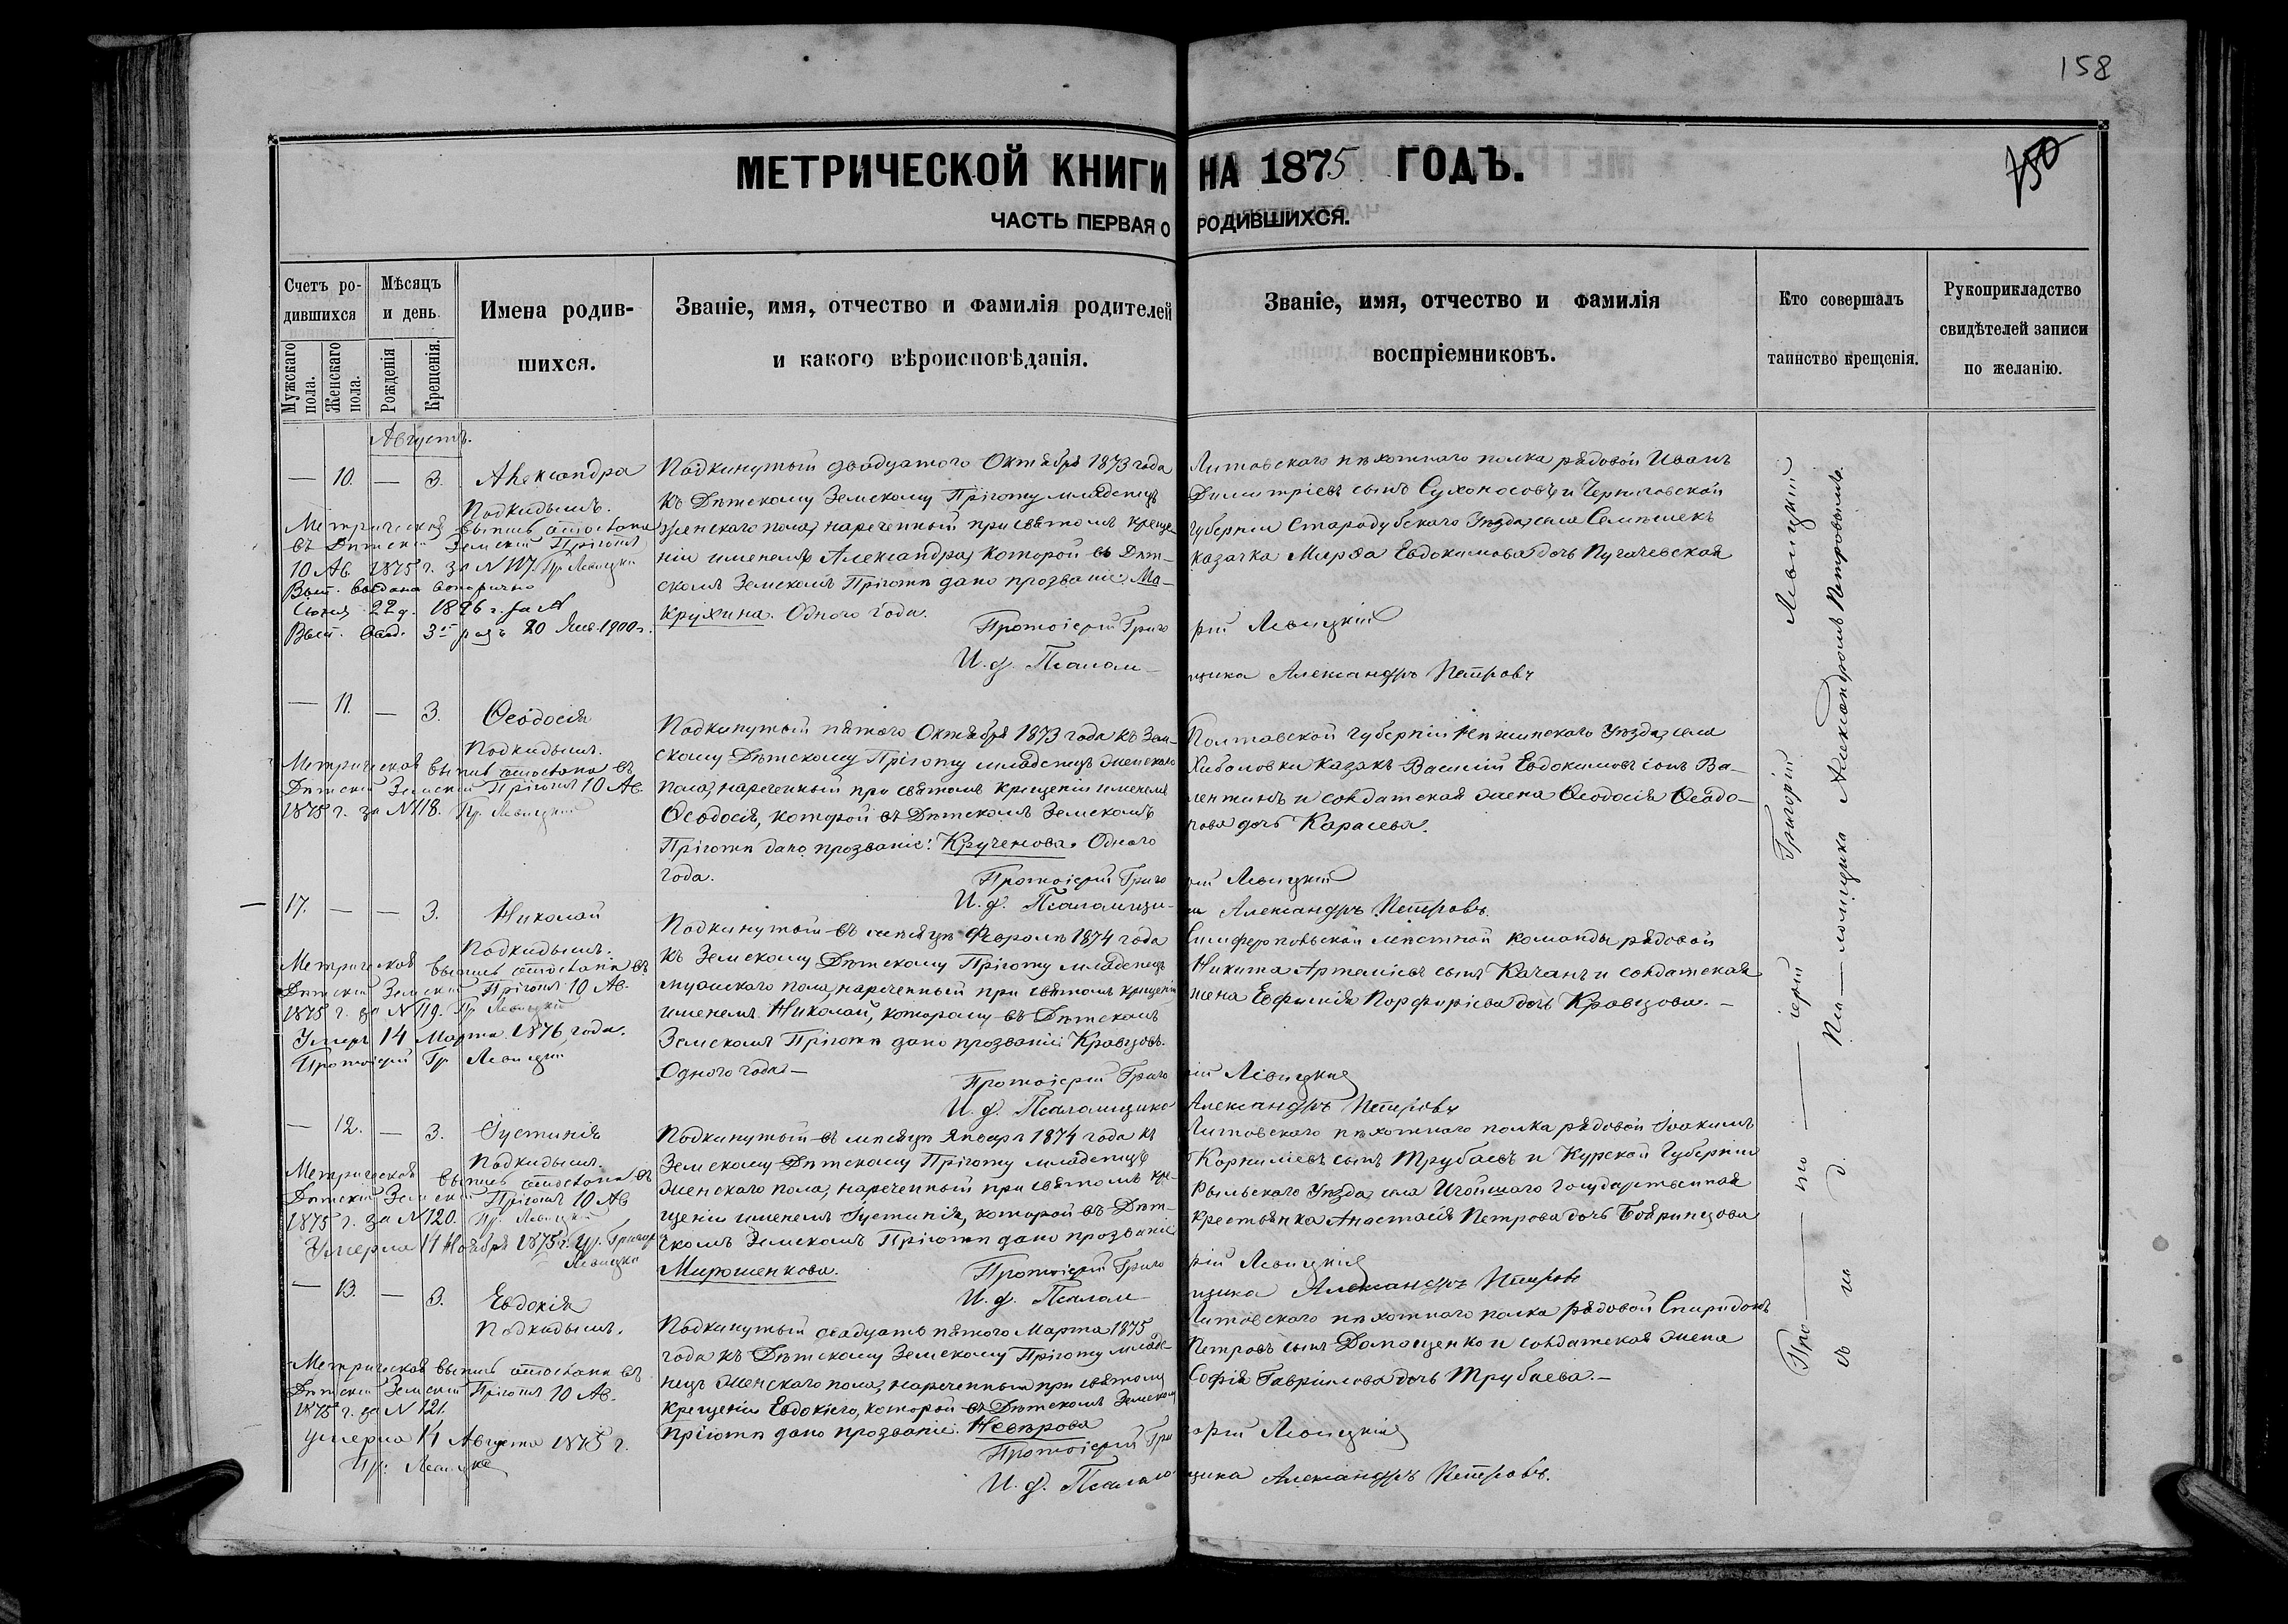 158
150
МЕТРИЧЕСКОЙ КНИГИ НА 1875 ГОДЪ.
ЧАСТЬ ПЕРВАЯ О РОДИВШИХСЯ.
Счетъ родившихся
Мужскаго пола.
Женскаго пола.
Мѣсяцъ и день
Рожденія
Крещенія.
Имена родив-
шихся.
Званіе, имя, отчество и фамилія родителей
и какого вѣроисповѣданія.
Званіе, имя, отчество и фамилія
воспріемниковъ.
Кто совершалъ
таинство крещенія.
Рукоприкладство
свидѣтелей записи
по желанію.
Августъ.
— 10. — 3. Александра
Подкидышъ.
Метрическая выпись
въ Дѣтскій Земскій Пріютъ
10 Ав. 1875 г. за N 117. Пр. Левицкій
Вып. выдана вторично
22 д. 1896 г. за N
Вып. выд. 3й разъ 20 1900 г.
Подкинутый двадцатого Октября 1873 года
къ Дѣтскому Земскому Пріюту младенецъ
женскаго пола, нареченный при святомъ креще-
ніи именемъ Александра, которой въ Дѣт-
скомъ Земскомъ Пріютѣ дано прозваніе Ма-
крухина. Одного года.
Литовскаго пѣхотнаго полка рядовой Иванъ
Димитріевъ сынъ Сухоносовъ и Черниговской
губерніи Стародубскаго Уѣзда, села
казачка Марѳа Евдокимова дочь Пугачевская
Протоіерей Григорій Левицкій
И. д. Псаломщика Александръ Петровъ
— 11. — 3. Ѳеодосія
Подкидышъ.
Метрическая выпись въ
Дѣтскій Земскій Пріютъ 10 Ав.
1875 г. за N 118. Пр. Левицкій
Подкинутый пятого Октября 1873 года къ Зем-
скому Дѣтскому Пріюту младенецъ женскаго
пола, нареченный при святомъ крещеніи именемъ
Ѳеодосія, которой въ Дѣтскомъ Земскомъ
Пріютѣ дано прозваніе: Крученова. Одного
года.
Полтавской губерніи Уѣзда, села
казакъ Василій Евдокимовъ сынъ Ва-
лентинъ и солдатская жена Ѳеодосія Ѳеодо-
това дочь Карасева.
Протоіерей Григорій Левицкій
И. д. Псаломщика Александръ Петровъ.
17. — — 3. Николай
Подкидышъ.
Метрическая выпись въ
Дѣтскій Земскій Пріютъ 10 Ав.
1875 г. за N 119. Пр. Левицкій
Умеръ 14 Марта 1876 года.
Протоіерей Гр. Левицкій
Подкинутый въ мѣсяцѣ Февралѣ 1874 года
къ Земскому Дѣтскому Пріюту младенецъ
мужскаго пола, нареченный при святомъ крещеніи
именемъ Николай, которому въ Дѣтскомъ
Земскомъ Пріютѣ дано прозваніе Кравцовъ.
Одного года. —
Симферопольской мѣстной команды рядовой
Никита Артеміевъ сынъ Качанъ и солдатская
жена Евфимія Порфиріева дочь Кравцова. —
Протоіерей Григорій Левицкій
И. д. Псаломщика Александръ Петровъ
— 12. — 3. Іустинія
Подкидышъ.
Метрическая выпись въ
Дѣтскій Земскій Пріютъ 10 Ав
1875 г. за N 120. Пр. Левицкій
Умерла 14 Ноября 1875 г. Пр. Григор
Левицкій
Подкинутый въ мѣсяцѣ Январѣ 1874 года къ
Земскому Дѣтскому Пріюту младенецъ
женскаго пола, нареченный при святомъ кре-
щеніи именемъ Іустинія, которой въ Дѣт-
скомъ Земскомъ Пріютѣ дано прозваніе
Мирошенкова.
Литовскаго пѣхотнаго полка рядовой Іоакимъ
Корниліевъ сынъ Трубаевъ и Курской Губерніи
Рыльскаго Уѣзда, села государственная
крестьянка Анастасія Петрова дочь Бояринцова
Протоіерей Григорій Левицкій
И. д. Псаломщика Александръ Петровъ
— 13. — 3. Евдокія
Подкидышъ.
Метрическая выпись въ
Дѣтскій Земскій Пріютъ 10 Ав.
1875 г. за N 121.
умерла 14 Августа 1875 г.
Пр. Левицкій
Подкинутый двадцать пятого Марта 1875
года къ Дѣтскому Земскому Пріюту младе-
нецъ женскаго пола, нареченный при святомъ
крещеніи Евдокіею, которой въ Дѣтскомъ Земском
Пріютѣ дано прозваніе:
Литовскаго пѣхотнаго полка рядовой Спиридонъ
Петровъ сынъ и солдатская жена
Софія Гавріилова дочь Трубаева. —
Протоіерей Григорій Левицкій
И. д. Псаломщика Александръ Петровъ.
Про — то — іерей Григорій Левицкій
съ и. д. Пса — ломщика Александромъ Петровымъ.